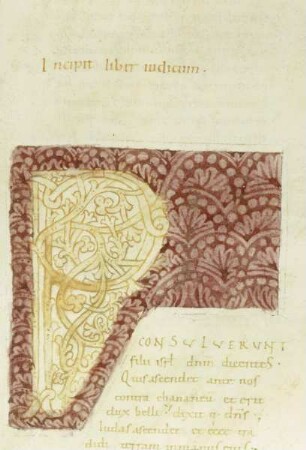 Incipit liber iudicum.
P
CONSULUERUNT
filii isrl dnm dicentes.
Quis ascendet ante nos
contra chananeu et erit
dux belli? dixit q; dns
Iudas ascendet et ecce
terram in manus eius